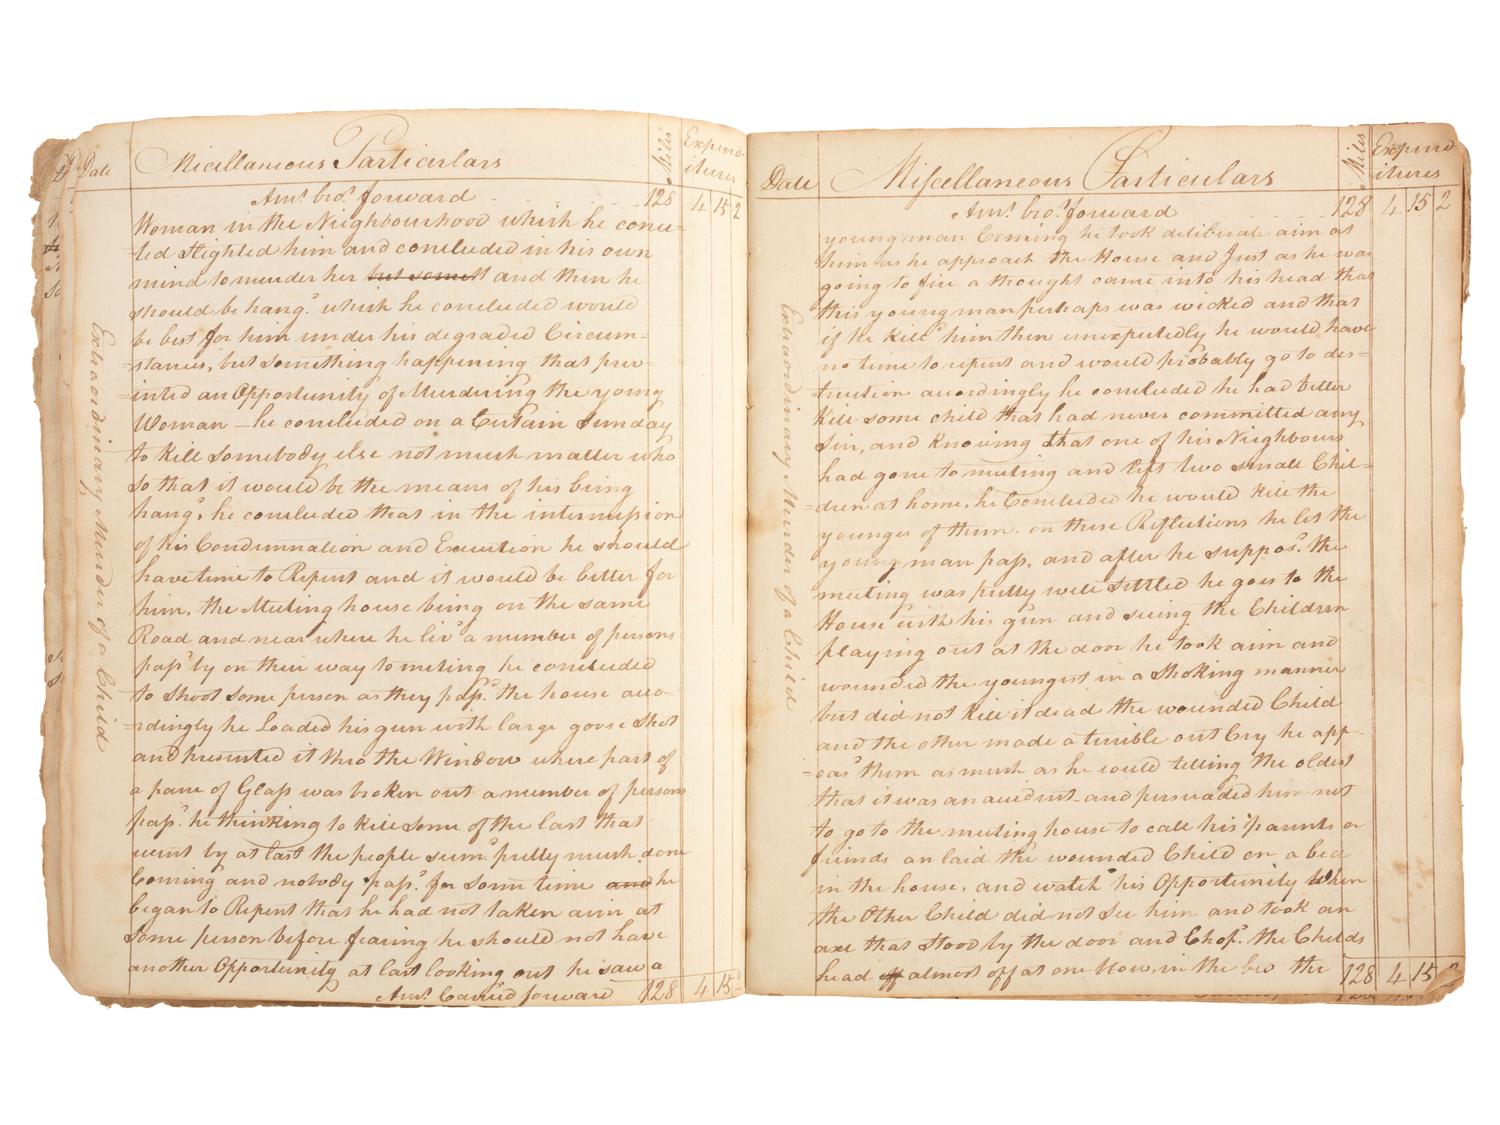 Date Micellaneous Particulars Miles Expend-
itures
Amt. bro.t forward 128 4 15 2
Extraordinary Murder of a Child
Woman in the Neighbourhood which he conce-
-ted Slighted him and concluded in his own
mind to murder her but somett and then he
should be hang.d which he concluded would
be best for him under his degraded Circum-
-stances, but Something happening that prev-
-inted an Opportunity of Murdering the young
Woman — he concluded on a Certain Sunday
to Kill Somebody else not much matter who
So that it would be the means of his being
hang.d, he concluded that in the intermission
of his Condemnation and Execution he should
have time to Repent and it would be better for
him, the Meeting house being on the same
Road and near where he liv.d a number of persons
pass.d by on their way to meeting he concluded
to Shoot Some person as they pass.d the house acco-
-rdingly he Loaded his gun with large goose Shot
and presented it thro the Window where part of
a pane of Glass was broken out a number of persons
pass.d he thinking to Kill Some of the last that
went by at last the people seem.d pretty much done
Coming and nobody pass.d for Some time and he
began to Repent that he had not taken aim at
Some person before fearing he should not have
another Opportunity at last looking out he saw a
Amt. Carried forward 128 4 15 2
Date Miscellaneous Particulars Miles Expend
itures
Amt. bro.t forward 128 4 15 2
Extraordinary Murder of a Child
young man Coming he took deliberate aim at
him as he approach the House and Just as he was
going to fire a thought came into his head that
this young man perhaps was wicked and that
if he Kill.d him then unexpectedly he would have
no time to repent and would probably go to des-
-truction accordingly he concluded he had better
Kill some child that had never committed any
Sin, and Knowing that one of his Neighbours
had gone to meeting and left two small Chil-
-dren at home, he Concluded he would Kill the
younges of them. on these Reflections he let the
young man pass, and after he suppos.d the
meeting was pretty well Settled he goes to the
House with his gun and seeing the Children
playing out at the door he took aim and
wounded the youngest in a Shoking manner
but did not Kill it dead the wounded Child
and the other made a terrible out Cry he app-
-eas.d them as much as he could telling the oldest
that it was an accident and persuaded him not
to go to the meeting house to call his parents or
friends an laid the wounded Child on a bed
in the house, and watch.d his Opportunity When
the Other Child did not See him and took an
axe that Stood by the door and Chop.d the Childs
head off almost off at one blow in the bed the
128 4 15 2